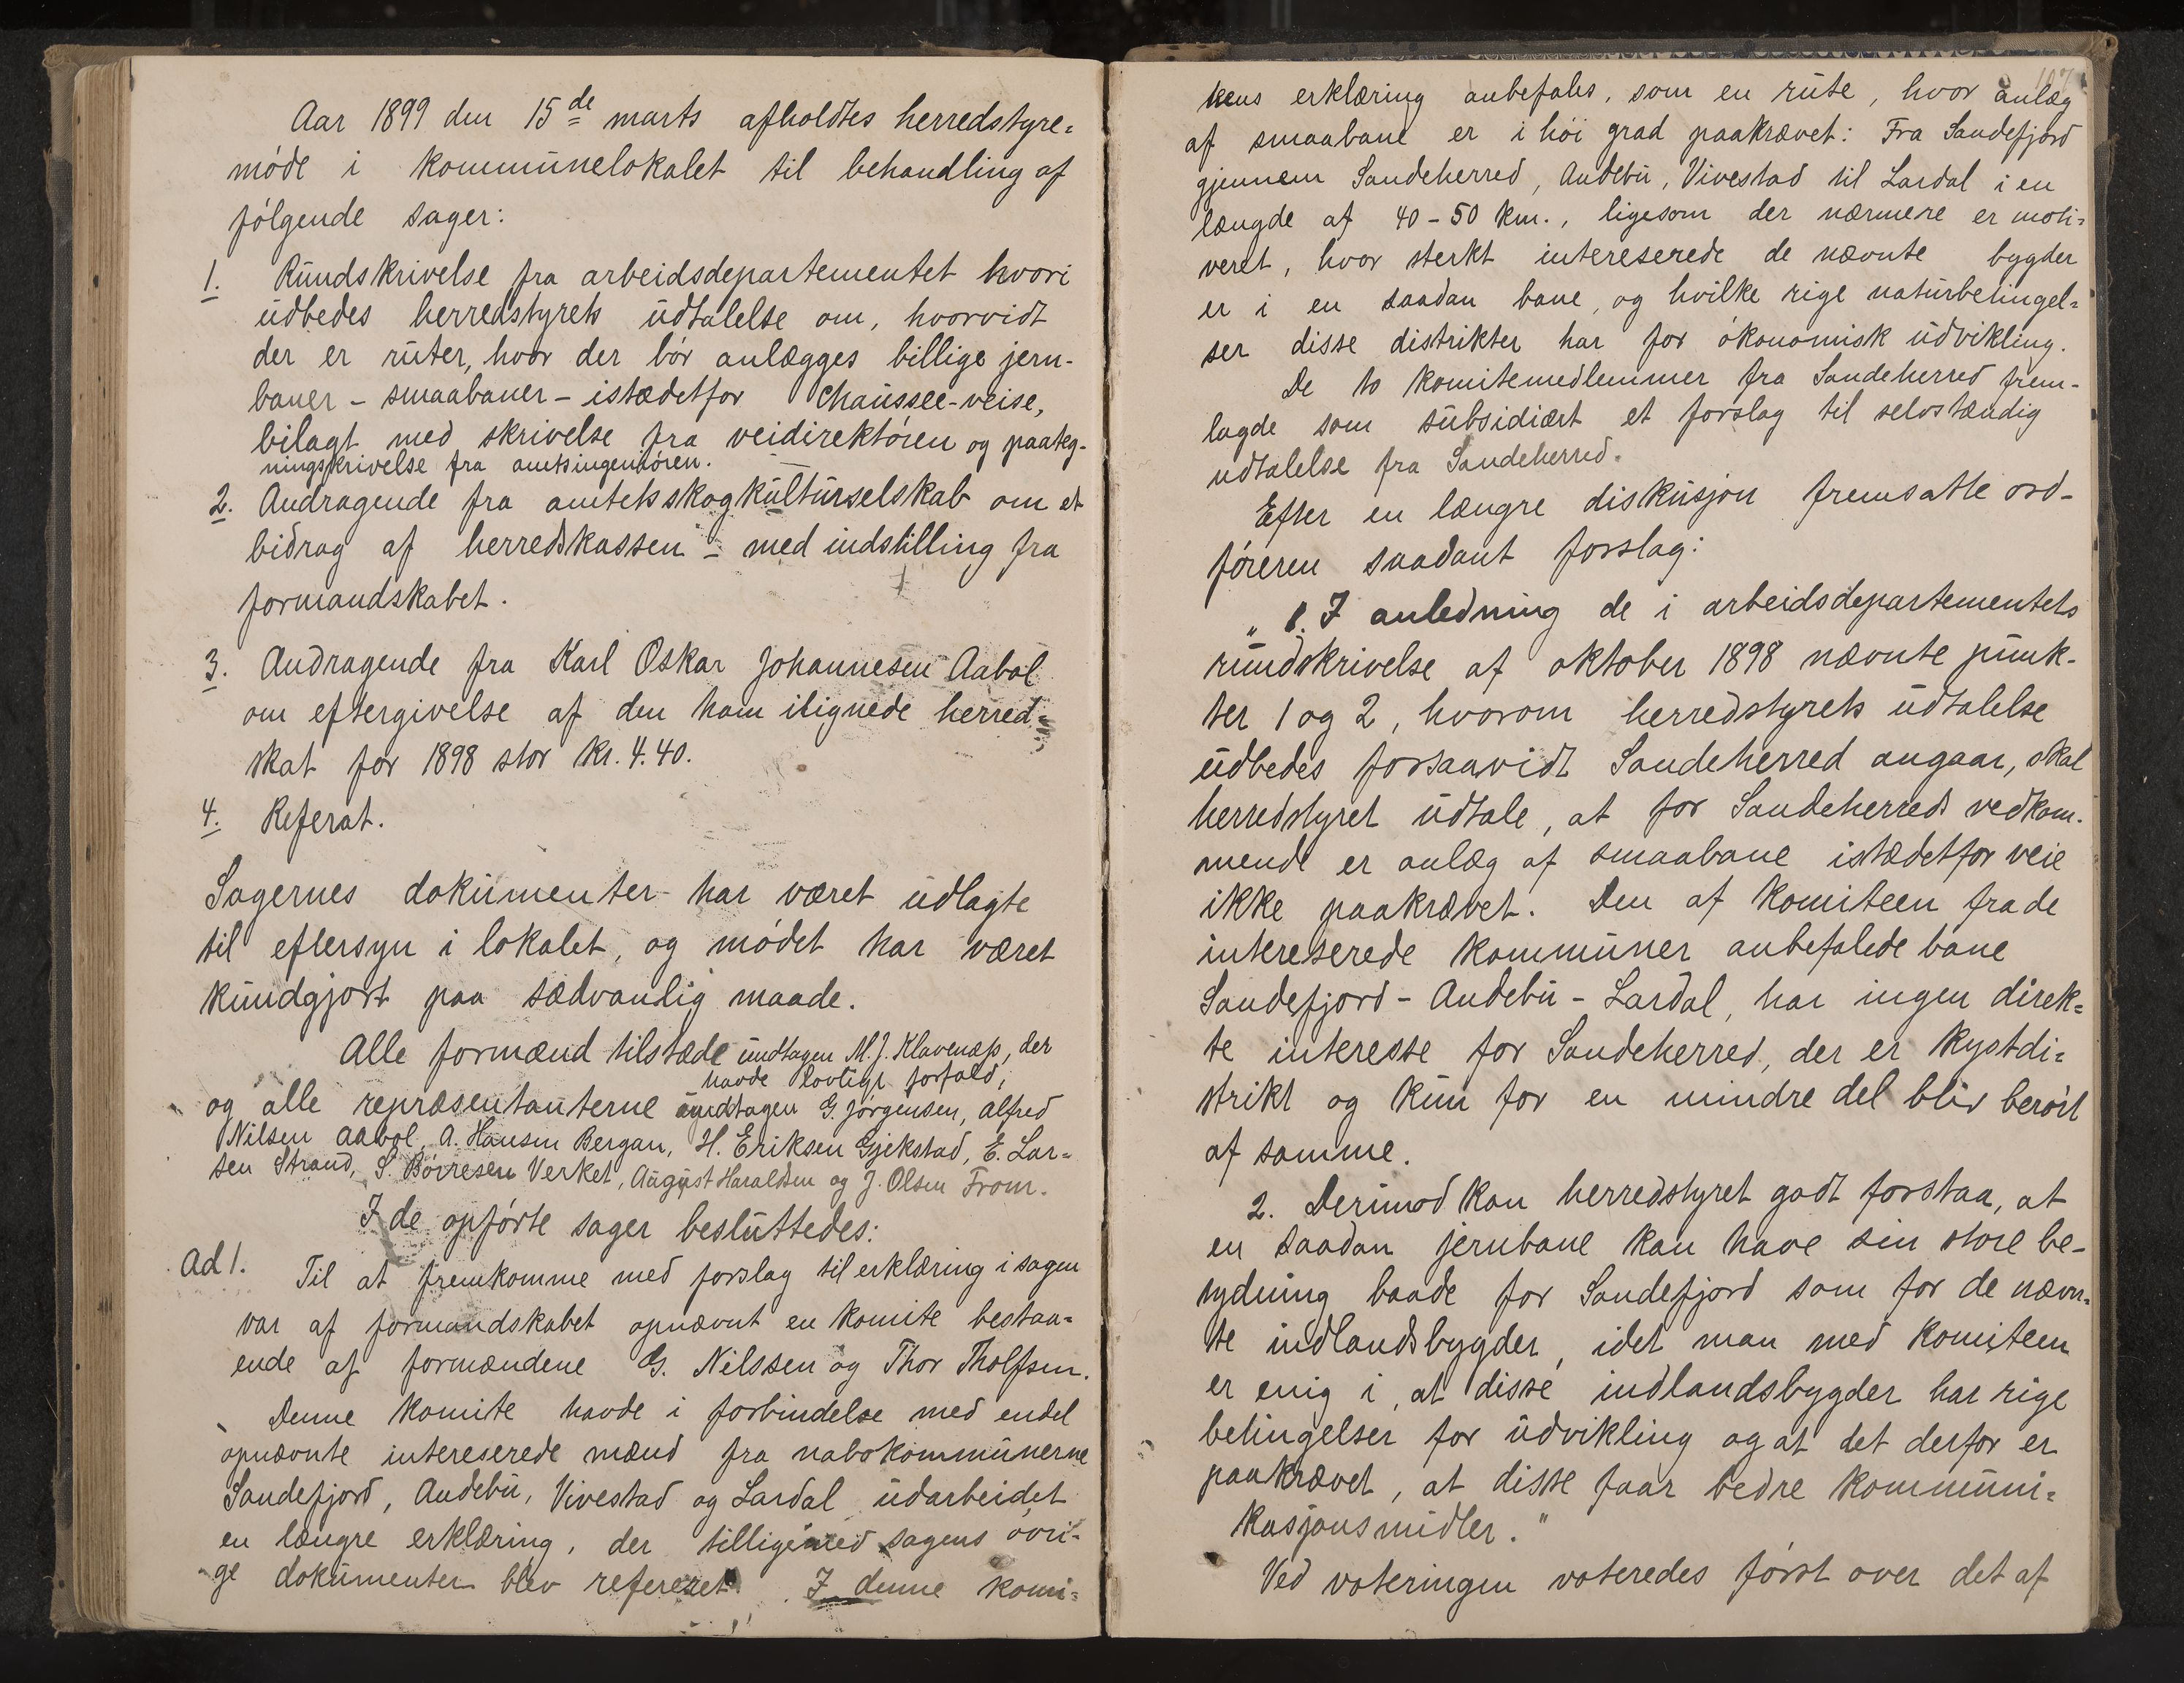 Aar 1899 den 15de marts afholdtes herredstyre=
möde i kommunelokalet til behandling af
fölgende sager:
1. Rundskrivelse fra arbeidsdepartementet hvori
udbedes herredstyrets udtalelse om, hvorvidt
der er ruter, hvor der bör anlægges billige jern-
baner - smaabaner - istædetfor Chaussee-veise,
bilagt med skrivelse fra veidirektören og paateg-
ningsskrivelse fra amtsingeniören.
2. Andragende fra amtets skogkulturselskab om et
bidrag af herredskassen - med indstilling fra
formandskabet.
3. Andragende fra Karl Oskar Johannesen Aabol
om eftergivelse af den ham ilignede herred=
skat for 1898 stor Kr. 4.40.
4. Referat.
Sagernes dokumenter har været udlagte
til eftersyn i lokalet, og mödet har været
kundgjort paa sædvanlig maade.
Alle formænd tilstæde undtagen M. J. Klavenæss, der
havde lovligt forfald,
og alle repræsentanterne undtagen G. Jörgensen, Alfred
Nilsen Aabol, A. Hansen Bergan, H. Eriksen Gjekstad, E. Lar=
sen Strand, S. Börresen Verket, August Haraldsen og J. Olsen From.
I de opförte sager besluttedes:
Ad 1. Til at fremkomme med forslag til erklæring i sagen
var af formandskabet opnævnt en komite bestaa=
ende af formændene G. Nilssen og Thor Tholfsen.
Denne komite havde i forbindelse med endel
opnævnte intereserede mænd fra nabokommunerne
Sandefjord, Andebu, Vivestad og Lardal udarbeidet
en længre erklæring, der tilligemed sagens övri-
ge dokumenter blev refereret. I denne komi=
107
teens erklæring anbefales, som en rute, hvor anlæg
af smaabane er i höi grad paakrævet: Fra Sandefjord
gjennem Sandeherred, Andebu, Vivestad til Lardal i en
længde af 40-50 km., ligesom der nærmere er moti=
veret, hvor sterkt intereserede de nævnte bygder
er i en saadan bane, og hvilke rige naturbetingel=
ser disse distrikter har for ökonomisk udvikling.
De to komitemedlemmer fra Sandeherred frem-
lagde som subsidiært et forslag til selvstændig
udtalelse fra Sandeherred.
Efter en længre diskusjon fremsatte ord-
föreren saadant forslag:
„1. I anledning de i arbeidsdepartementets
rundskrivelse af oktober 1898 nævnte punk-
ter 1 og 2, hvorom herredstyrets udtalelse
udbedes forsaavidt Sandeherred angaar, skal
herredstyret udtale, at for Sandeherreds vedkom-
mende er anlæg af smaabane istædetfor veie
ikke paakrævet. Den af komiteen fra de
intereserede kommuner anbefalede bane
Sandefjord - Andebu - Lardal, har ingen direk=
te interesse for Sandeherred, der er kystdi=
strikt og kun for en mindre del bliv beröit
af samme.
2. Derimod kan herredstyret godt forstaa, at
en saadan jernbane kan have sin store be-
tydning baade for Sandefjord som for de nævn=
te indlandsbygder, idet man med komiteen
er enig i, at disse indlandsbygder har rige
betingelser for udvikling og at det derfor er
paakrævet, at disse faar bedre kommuni=
kasjonsmidler."
Ved voteringen voteredes först over det af